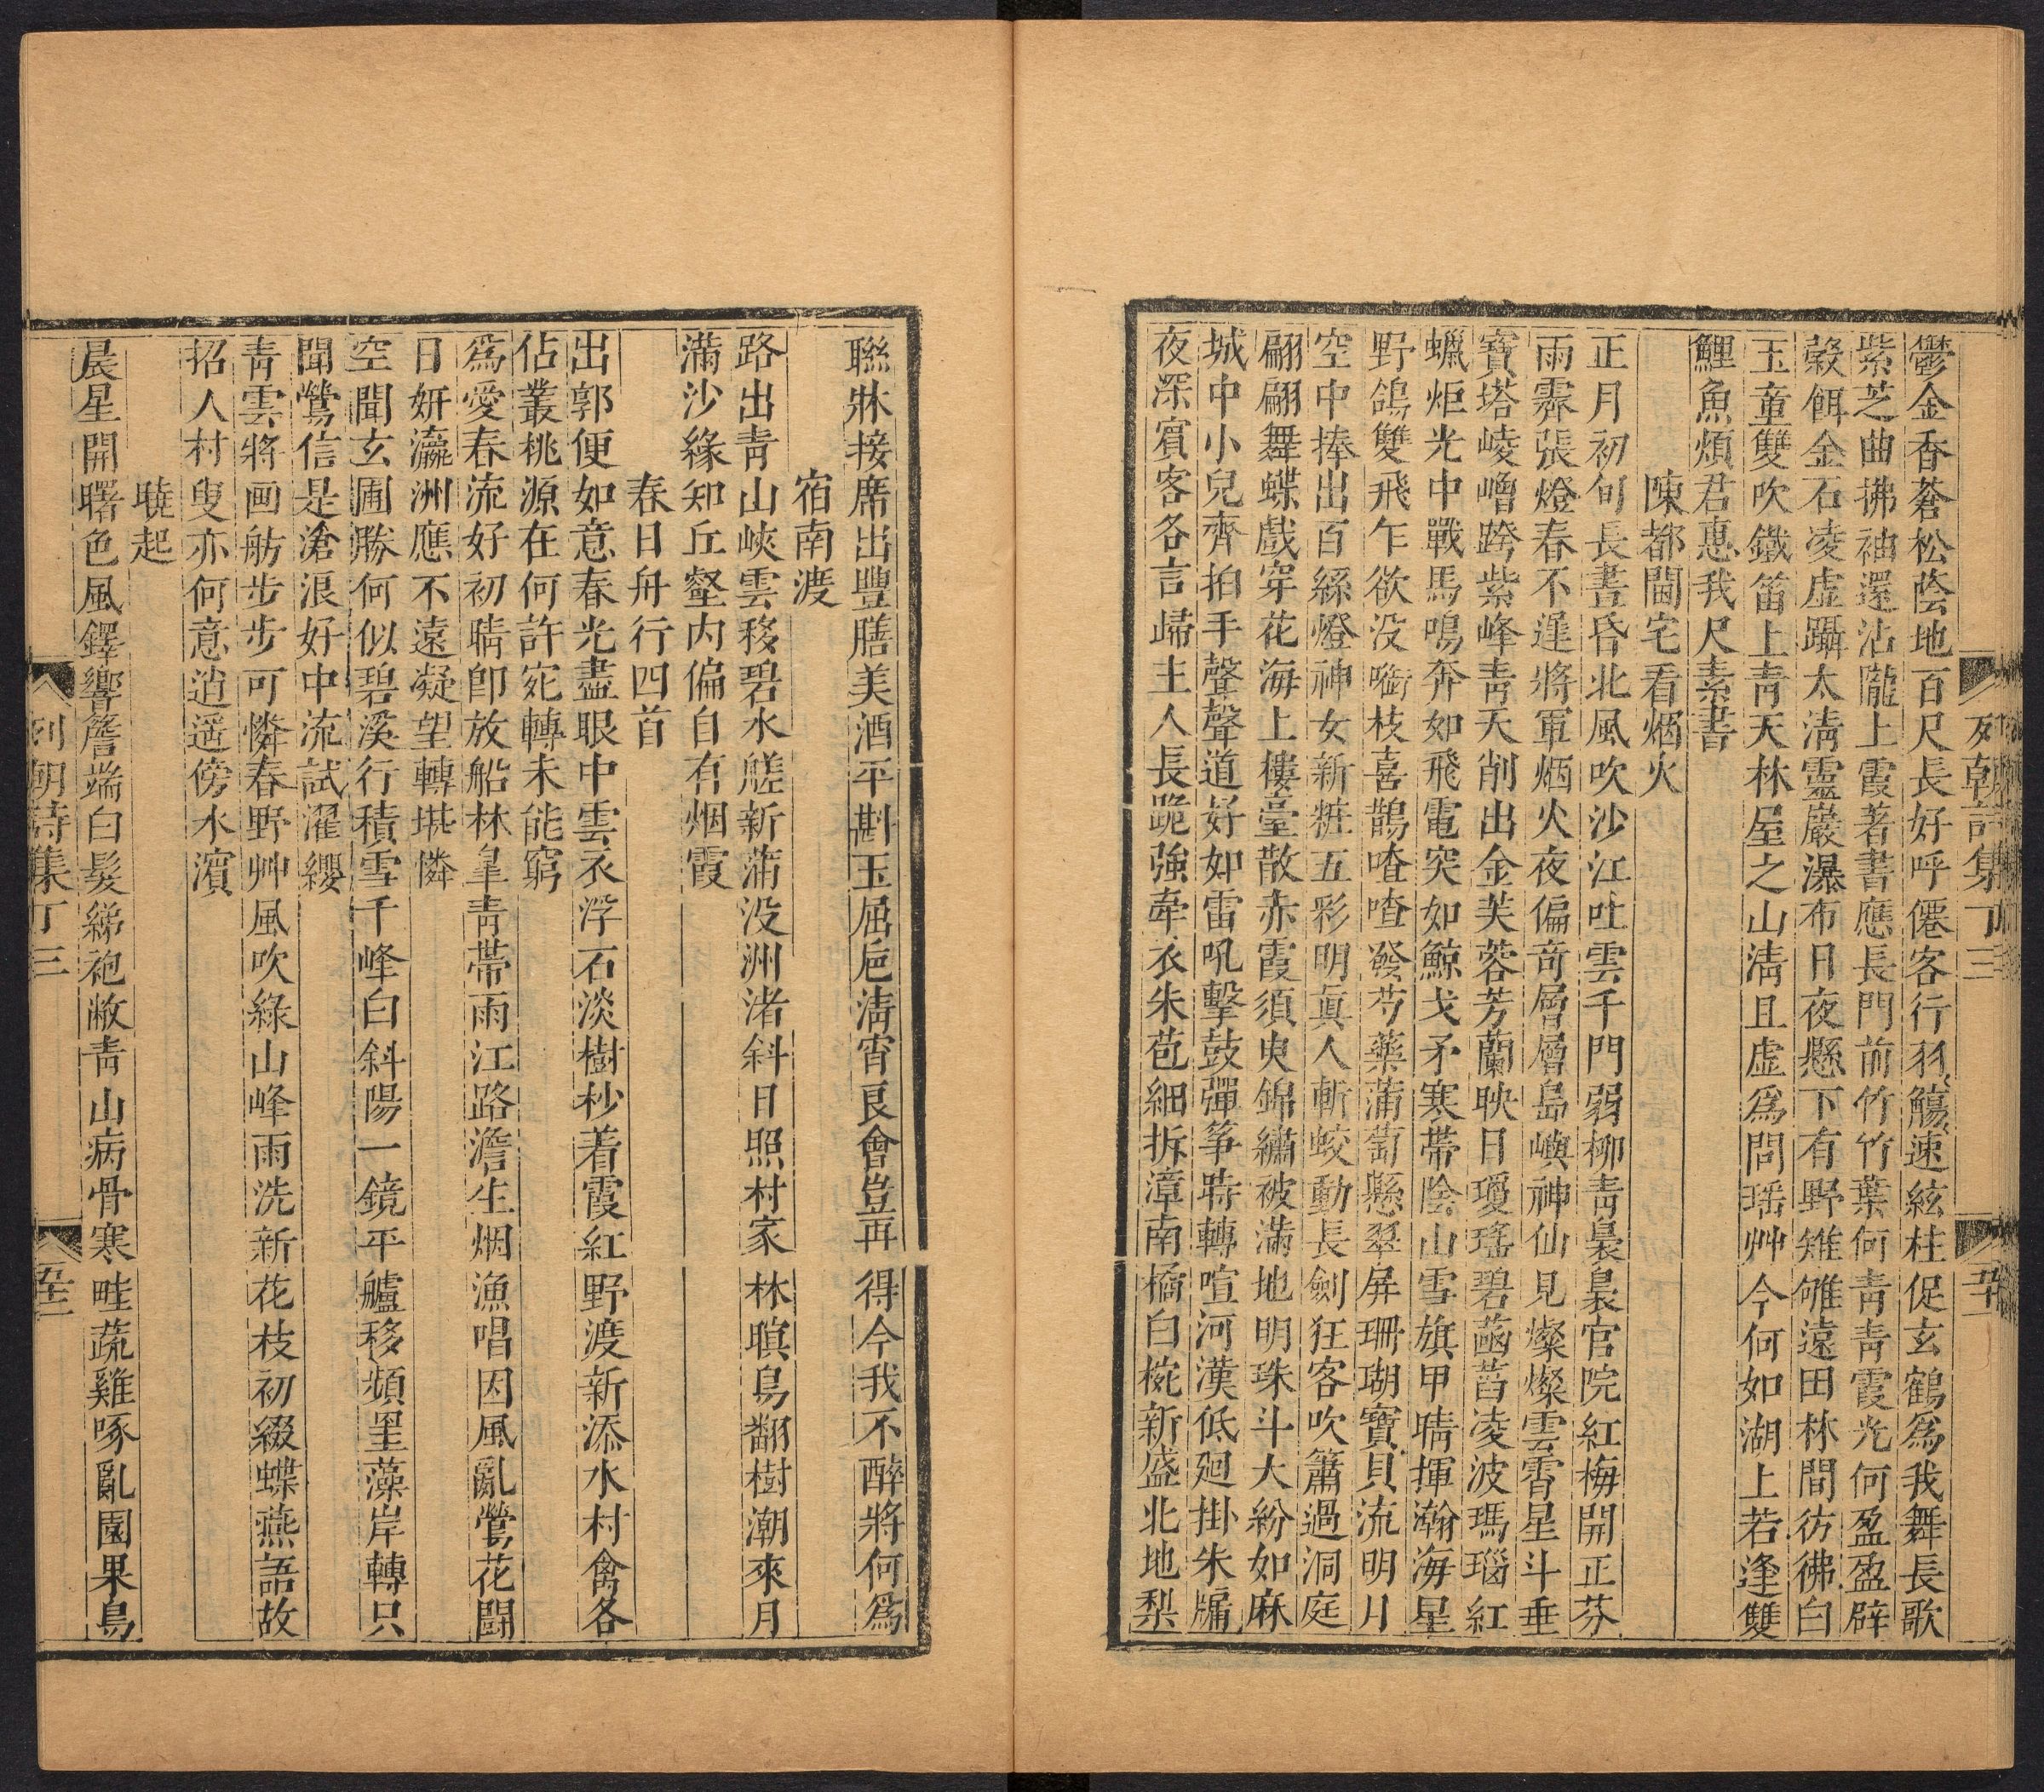 列朝詩集丁三
鬱金香蒼松蔭地百尺長好呼僊客行羽觴速絃柱促玄鶴爲我舞長歌
紫芝曲拂袖還沾隴上霞著書應長門前竹竹葉何青青霞光何盈盈辟
穀餌金石凌虚躡太淸靈巖瀑布日夜懸下有野雉雊遠田林間彷彿白
玉童雙吹鐵笛上靑天林屋之山淸且虚爲問瑶艸今何如湖上若逢雙
鯉魚煩君惠我尺素書
陳都閫宅看烟火
正月初旬長晝昏北風吹沙江吐雲千門弱柳靑裊裊官院紅梅開正芬
雨霽張燈春不遲將軍烟火夜偏奇層層島嶼神仙見燦燦雲霄星斗垂
寳塔崚嶒跨紫峰靑天削出金芙蓉芳蘭映日瓊瑤碧菡萏凌波瑪瑙紅
蠟炬光中戰馬鳴奔如飛電突如鯨戈矛寒帶陰山雪旗甲晴揮瀚海星
野鴿雙飛乍欲没噙枝喜鵲喳喳發芍藥蒲萄懸翠屏珊瑚寳貝流明月
空中捧出百絲燈神女新粧五彩明眞人斬蛟動長劍狂客吹簫過洞庭
翩翩舞蝶戲穿花海上樓臺散赤霞須臾錦繡被滿地明珠斗大紛如麻
城中小兒齊拍手聲聲道好如雷吼擊鼓彈筝時轉喧河漢低廻掛朱牖
夜深賓客各言歸主人長跪強牽衣朱苞細拆漳南橘白椀新盛北地梨
聯牀接席出豐膳美酒平斟玉屈巵淸宵良會豈再得今我不醉將何爲
宿南渡
路出靑山峽雲移碧水艖新蒲没洲渚斜日照村家林暝鳥翻樹潮來月
滿沙緣知丘壑内偏自有烟霞
春日舟行四首
出郭便如意春光盡眼中雲衣浮石淡樹杪着霞紅野渡新添水村禽各
佔叢桃源在何許宛轉未能窮
爲愛春流好初晴卽放船林臯靑帶雨江路澹生烟漁唱因風亂鶯花鬪
日妍瀛洲應不遠凝望轉堪憐
空聞玄圃勝何似碧溪行積雪千峰白斜陽一鏡平艫移頻罣藻岸轉只
聞鶯信是滄浪好中流試濯纓
靑雲將画舫步步可憐春野艸風吹綠山峰雨洗新花枝初綴蝶燕語故
招人村叟亦何意逍遥傍水濱
曉起
晨星開曙色風鐸響簷端白髮綈袍敝靑山病骨寒畦蔬雞啄亂園果鳥
列朝詩集丁三